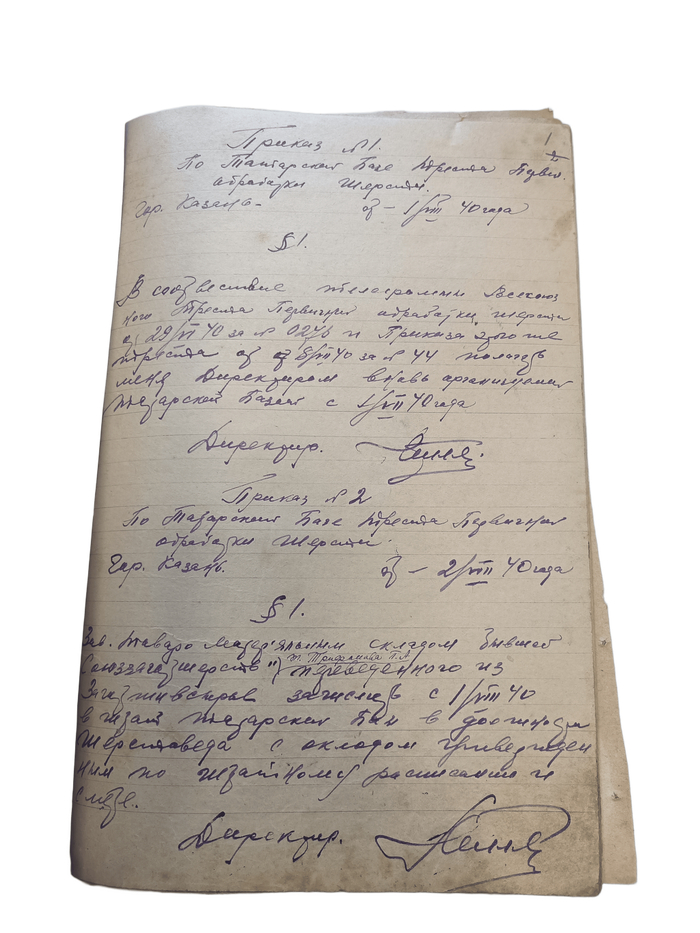 Приказ №1.
1
По Татарской Базе Треста Первич.
обработки Шерсти.
Гор. Казань - от - 1/VIII 40 года
§ 1.
В соответствие телеграммы Всесоюз
ного Треста Первичной обработки шерсти
от 29/VII 40 за № 0276 и Приказа этого же
треста от 8/VIII 40 за № 44 полагать
меня Директором вновь организуемой
татарской Базы с 1/VIII 40 года
Директор.
Приказ № 2
По Татарской Базе Треста Первичной
обработки Шерсти.
Гор. Казань. от - 2/VIII 40 года
§ 1.
Зав. товаро материальным складом бывшей
т. Трифонова П.А.
Союззаготшерсть" переведенного из
Заготживсырья зачислить с 1/VIII 40
в штат татарской Базы в должности
Шерстоведа с окладом утвержден
ным по штатному расписанию и
смете.
Директор.